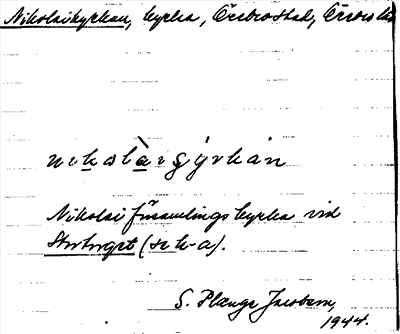 Nikolaikyrkan, kyrka, Örebro stad, Örebro
nikolàiçýrkan
Nikolai församlings kyrka vid
Stortorget (se k-a).
S. Plange Jacobson,
1944.